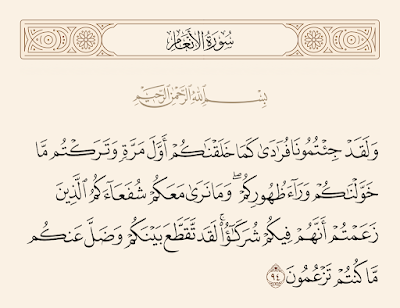 سُورَةُ الأَنْعَامِ
بِسْمِ اللَّهِ الرَّحْمَٰنِ الرَّحِيمِ
وَلَقَدْ جِئْتُمُونَا فُرَادَىٰ كَمَا خَلَقْنَٰكُمْ أَوَّلَ مَرَّةٍ وَتَرَكْتُم مَّا
خَوَّلْنَٰكُمْ وَرَآءَ ظُهُورِكُمْ ۖ وَمَا نَرَىٰ مَعَكُمْ شُفَعَآءَكُمُ ٱلَّذِينَ
زَعَمْتُمْ أَنَّهُمْ فِيكُمْ شُرَكَٰٓؤُا۟ ۚ لَقَد تَّقَطَّعَ بَيْنَكُمْ وَضَلَّ عَنكُم
مَّا كُنتُمْ تَزْعُمُونَ ٩٤